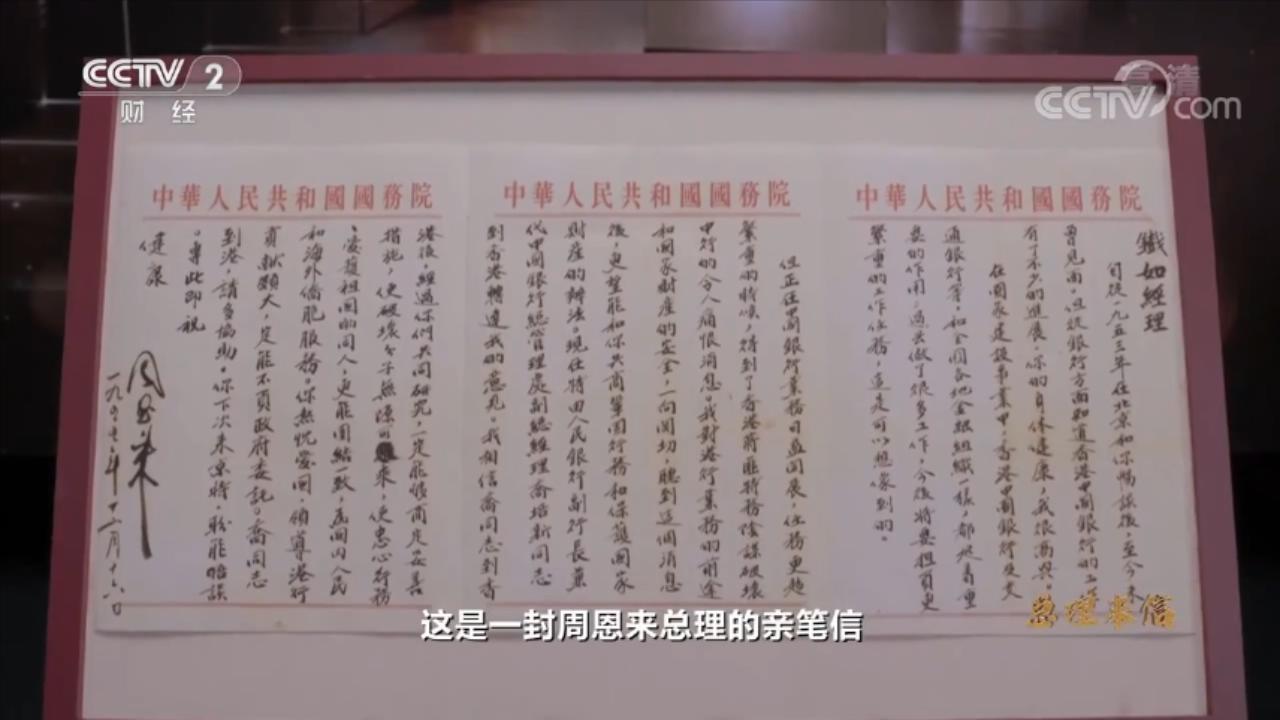 CCTV 2
财经
高清
CCTV.com
中華人民共和國國務院
鐵如經理
自從一九五三年在北京和你暢談後，至今未
曾見面。但從銀行方面知道香港中國銀行的工
有了不少的進展，你的身体健康，我很高興。
在國家建設事業中，香港中國銀行及交
通銀行等，和全國各地金融組織一樣，都起着重
要的作用，過去做了很多工作，今後將要担負更
繁重的工作任務，這是可以想像到的。
中華人民共和國國務院
但正在中國銀行業務日益開展，任務更趨
繁重的時候，得到了香港蔣匪特務陰謀破壞
中行的令人痛恨消息。我對港行業務的前途
和國家財產的安全，一向関切，聽到這個消息
後，更望能和你共商鞏固行務和保護國家
財產的辦法。現在特由人民銀行副行長兼
代中國銀行總管理處副總經理喬培新同志
到香港轉達我的意見。我相信喬同志到香
中華人民共和國國務院
港後，經過你們共同研究，一定能够商定妥善
措施，使破壞分子無隙可來，使忠心行務
、愛護祖國的同人，更能團結一致，為國內人民
和海外僑胞服務。你熱忱愛國，領導港行
貢献頗大，一定能不負政府委託。喬同志
到港，請多協助。你下次來京時，盼能晤談
。專此即祝
健康
周恩来
十二月十六日
总理来信
这是一封周恩来总理的亲笔信